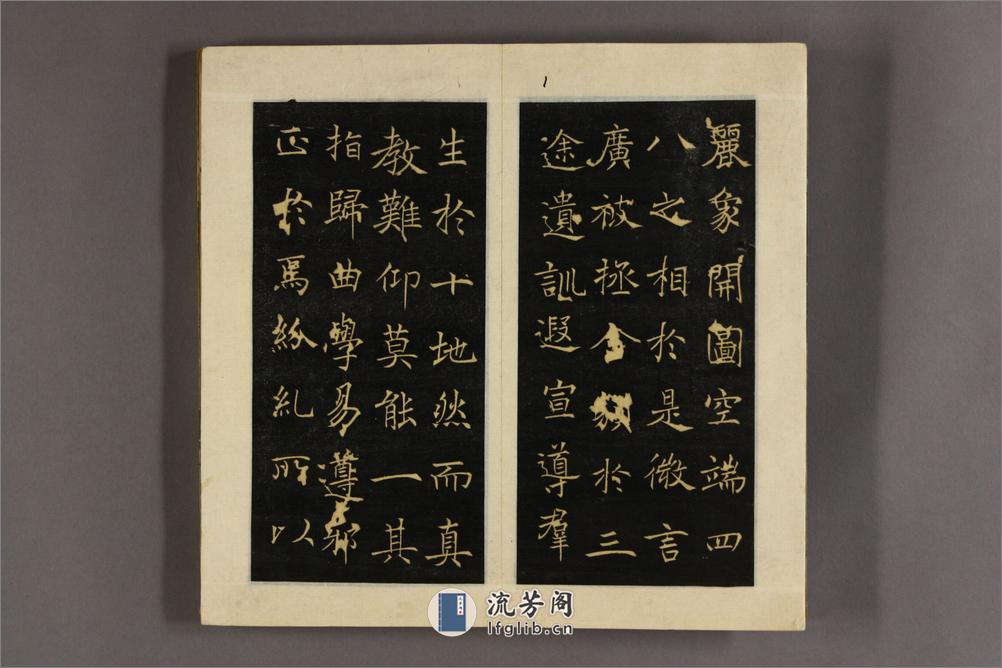 麗象開圖空端四
八之相於是微言
廣被拯含類於三
途遺訓遐宣導羣
生於十地然而真
教難仰莫能一其
指歸曲學易遵邪
正於焉紛糺所以
流芳阁
lfglib.cn